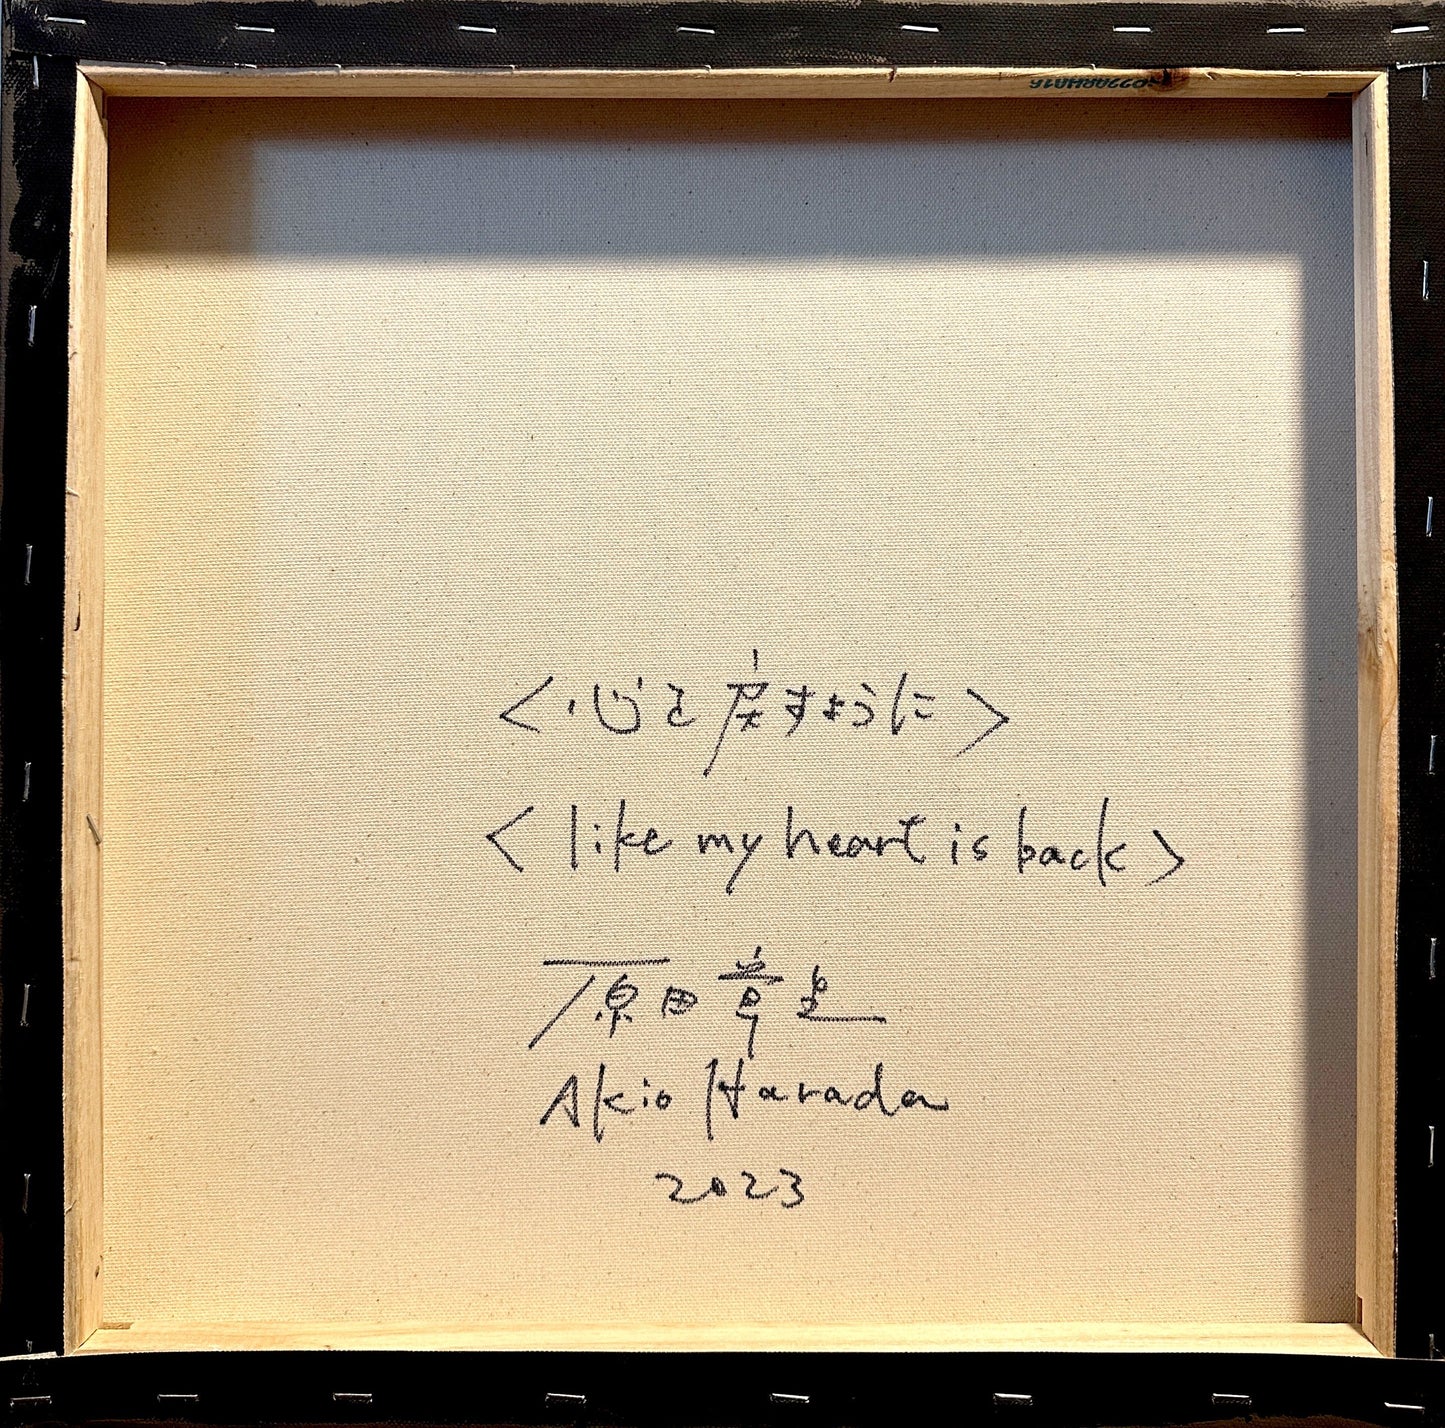 <心を戻すように>
<like my heart is back>
原田章生
Akio Harada
2023